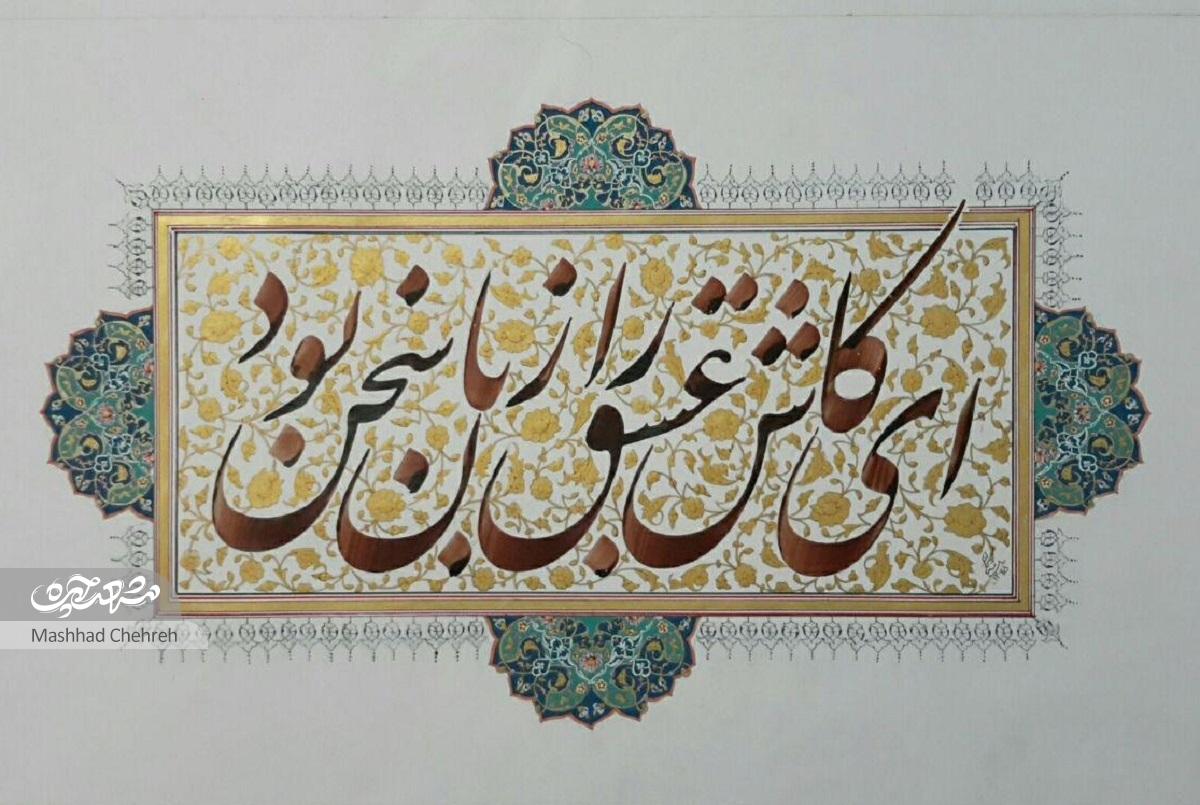 ای کاش عشق را زبان سخن بود
مشهدچهره
Mashhad Chehreh